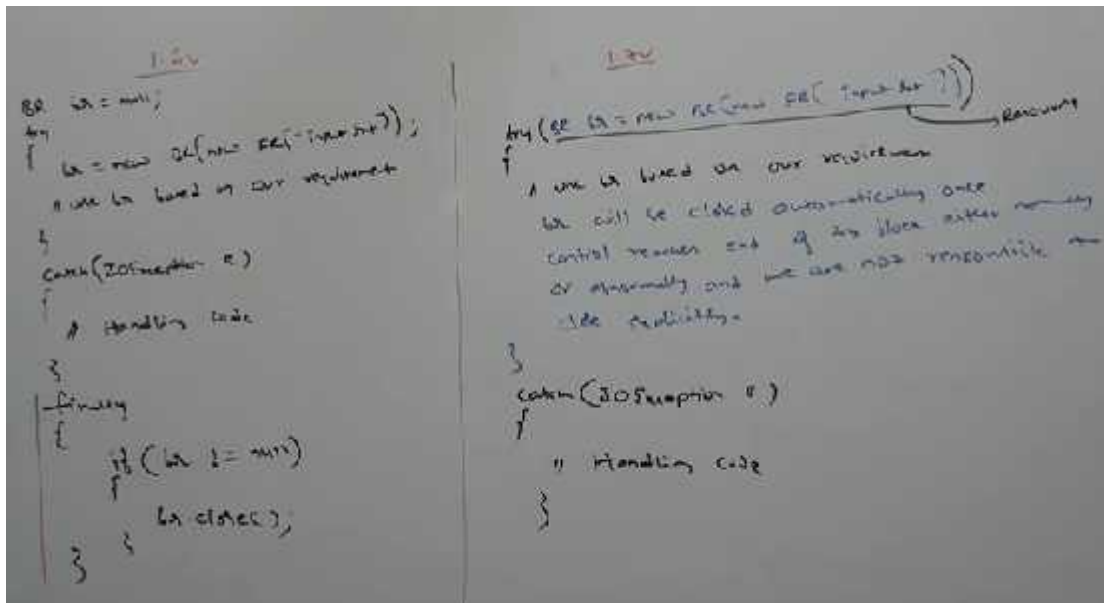 1.6v
BR br = null;
try
{
br = new BR(new FR("input.txt"));
// use br based on our requirement
}
catch(IOException e)
{
// Handling code
}
finally
{
if(br != null)
{
br.close();
}
}
1.7v
try(BR br = new BR(new FR("input.txt")))
Resource
{
// use br based on our requirement
br will be closed automatically once
control reaches end of try block either normally
or abnormally and we are not responsible to
close explicitly.
}
catch(IOException e)
{
// Handling code
}